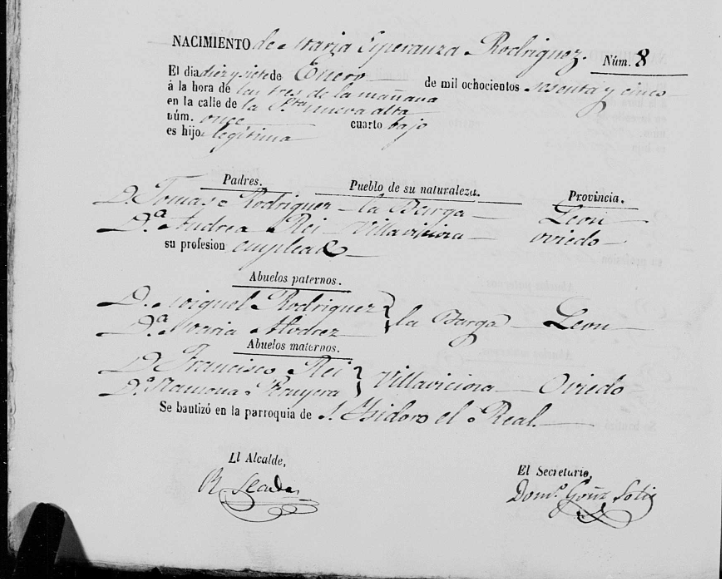 NACIMIENTO de Maria Esperanza Rodriguez. Núm. 8
El dia diez y siete de Enero de mil ochocientos sesenta y cinco
á la hora de las tres de la mañana
en la calle de la Pta nueva alta
núm. once cuarto bajo
es hijo legitima
Padres. Pueblo de su naturaleza. Provincia.
D. Tomas Rodriguez la Barga Leon
D.ª Andrea Rei Villaviciosa Oviedo
su profesion empleado
Abuelos paternos.
D. Miguel Rodriguez
D.ª Maria Alvarez } la Barga Leon
Abuelos maternos.
D. Francisco Rei
D.ª Ramona } Villaviciosa Oviedo
Se bautizó en la parroquia de S. Isidoro el Real.
El Alcalde, El Secretario,
Dom.º Gonz